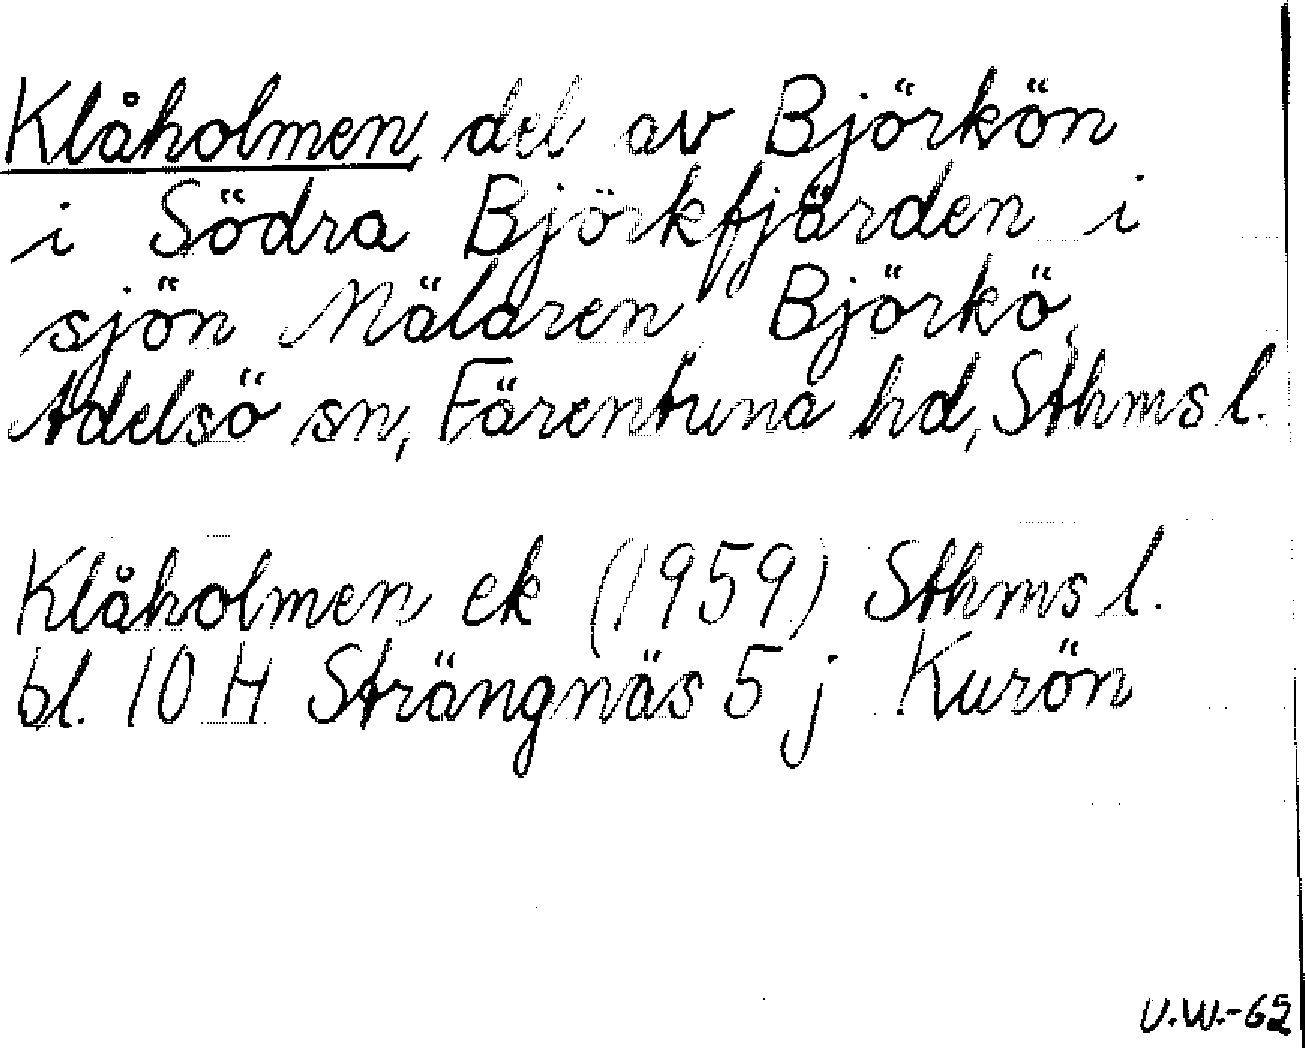 Klåholmen, del av Björkön
i Södra Björkfjärden i
sjön Mälaren, Björkö,
Adelsö sn, Färentuna hd, Sthms l.
Klåholmen ek (1959) Sthms l.
bl. 10 H Strängnäs 5 j Kurön
U.W.-62